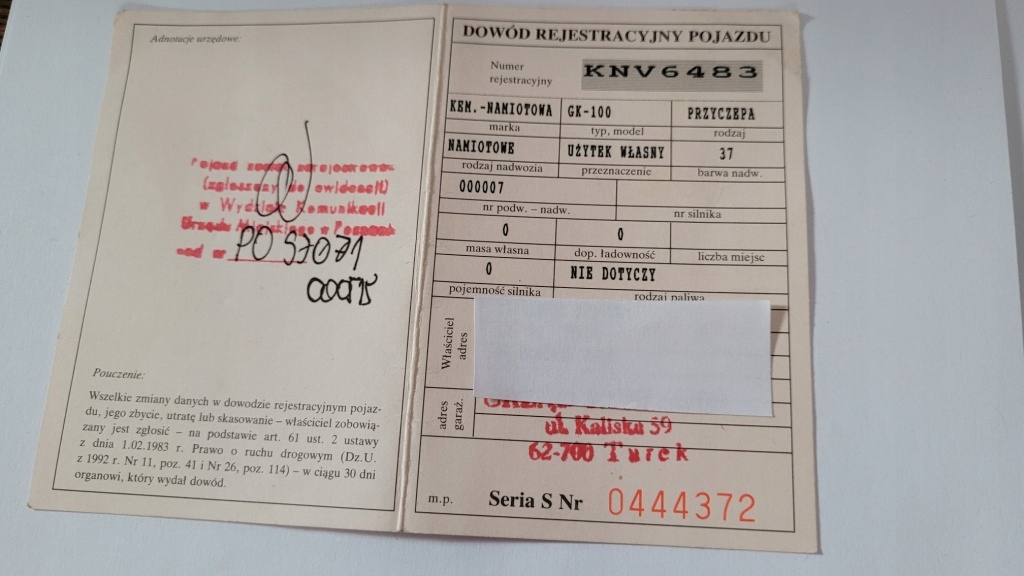 Adnotacje urzędowe:
(zgłoszony do ewidencji)
w Wydziale Komunikacji
Urzędu Miejskiego w
nr PO 57071
Pouczenie:
Wszelkie zmiany danych w dowodzie rejestracyjnym pojaz-
du, jego zbycie, utratę lub skasowanie – właściciel zobowią-
zany jest zgłosić – na podstawie art. 61 ust. 2 ustawy
z dnia 1.02.1983 r. Prawo o ruchu drogowym (Dz.U.
z 1992 r. Nr 11, poz. 41 i Nr 26, poz. 114) – w ciągu 30 dni
organowi, który wydał dowód.
DOWÓD REJESTRACYJNY POJAZDU
Numer
rejestracyjny
KNV6483
KEM.-NAMIOTOWA GK-100 PRZYCZEPA
marka typ, model rodzaj
NAMIOTOWE UŻYTEK WŁASNY 37
rodzaj nadwozia przeznaczenie barwa nadw.
000007
nr podw. – nadw. nr silnika
0 0
masa własna dop. ładowność liczba miejsc
0 NIE DOTYCZY
pojemność silnika rodzaj paliwa
Właściciel
adres
adres
garaż.
ul. Kaliska 59
62-700 Turek
m.p. Seria S Nr 0444372